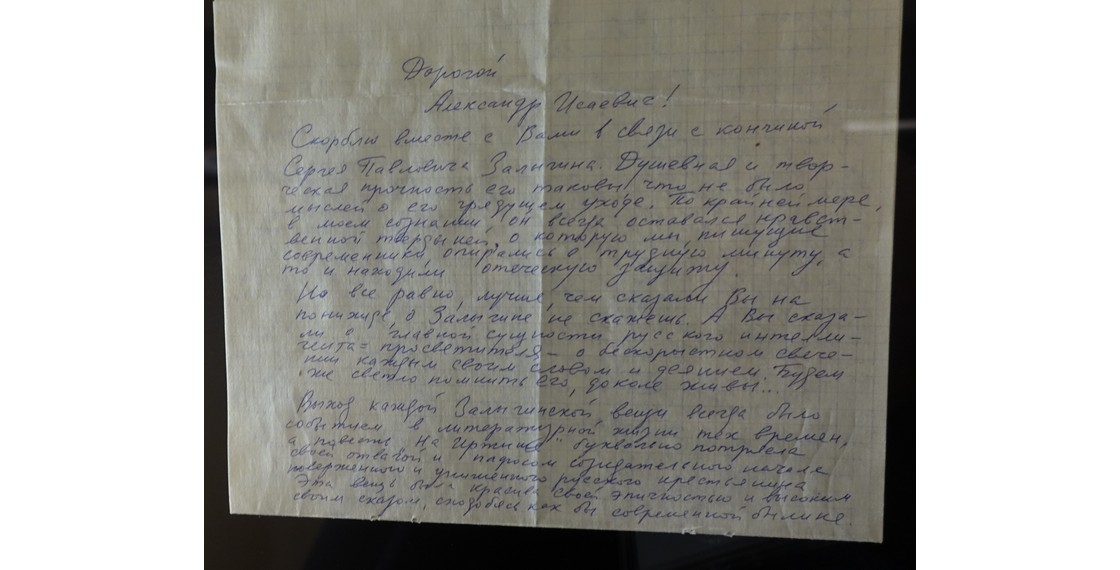 Дорогой
Александр Исаевич!
Скорблю вместе с Вами в связи с кончиной
Сергея Павловича Залыгина. Душевная и твор-
ческая прочность его таковы, что не было
мыслей о его грядущем уходе. По крайней мере,
в моем сознании, он всегда оставался нравст-
венной твердыней, о которую мы, пишущие
современники опирались в трудную минуту, а
то и находили отеческую защиту.
Но все равно, лучше, чем сказали Вы на
панихиде, о Залыгине не скажешь. А Вы сказа-
ли о главной сущности русского интелли-
гента-просветителя – о бескорыстном свече-
нии каждым своим словом и деянием. Будем
же светло помнить его, доколе живы...
Выход каждой Залыгинской вещи всегда было
событием в литературной жизни тех времен,
а повесть "На Иртыше" буквально потрясла
своей отвагой и пафосом созидательного начала
поверженного и униженного русского крестьянина
Эта вещь была красива своей эпичностью и высоким
своим сказом, сподобясь как бы современной былине.